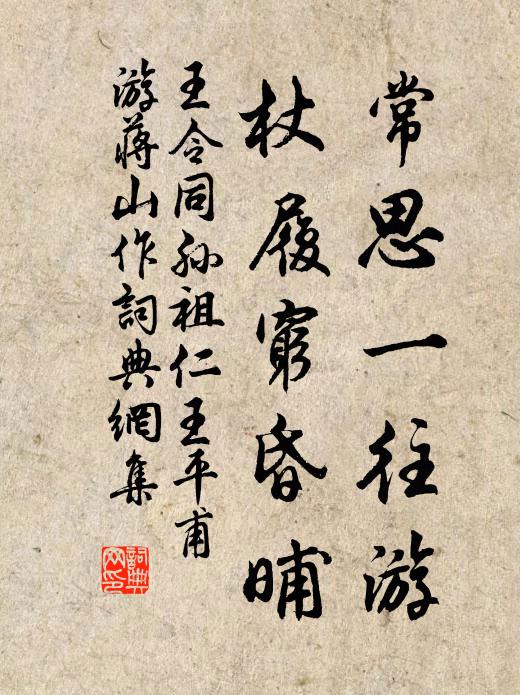 常思一往游
杖屨窮昏晡
王令同孫祖仁王平甫
游蔣山作詞典網集
詞典網印